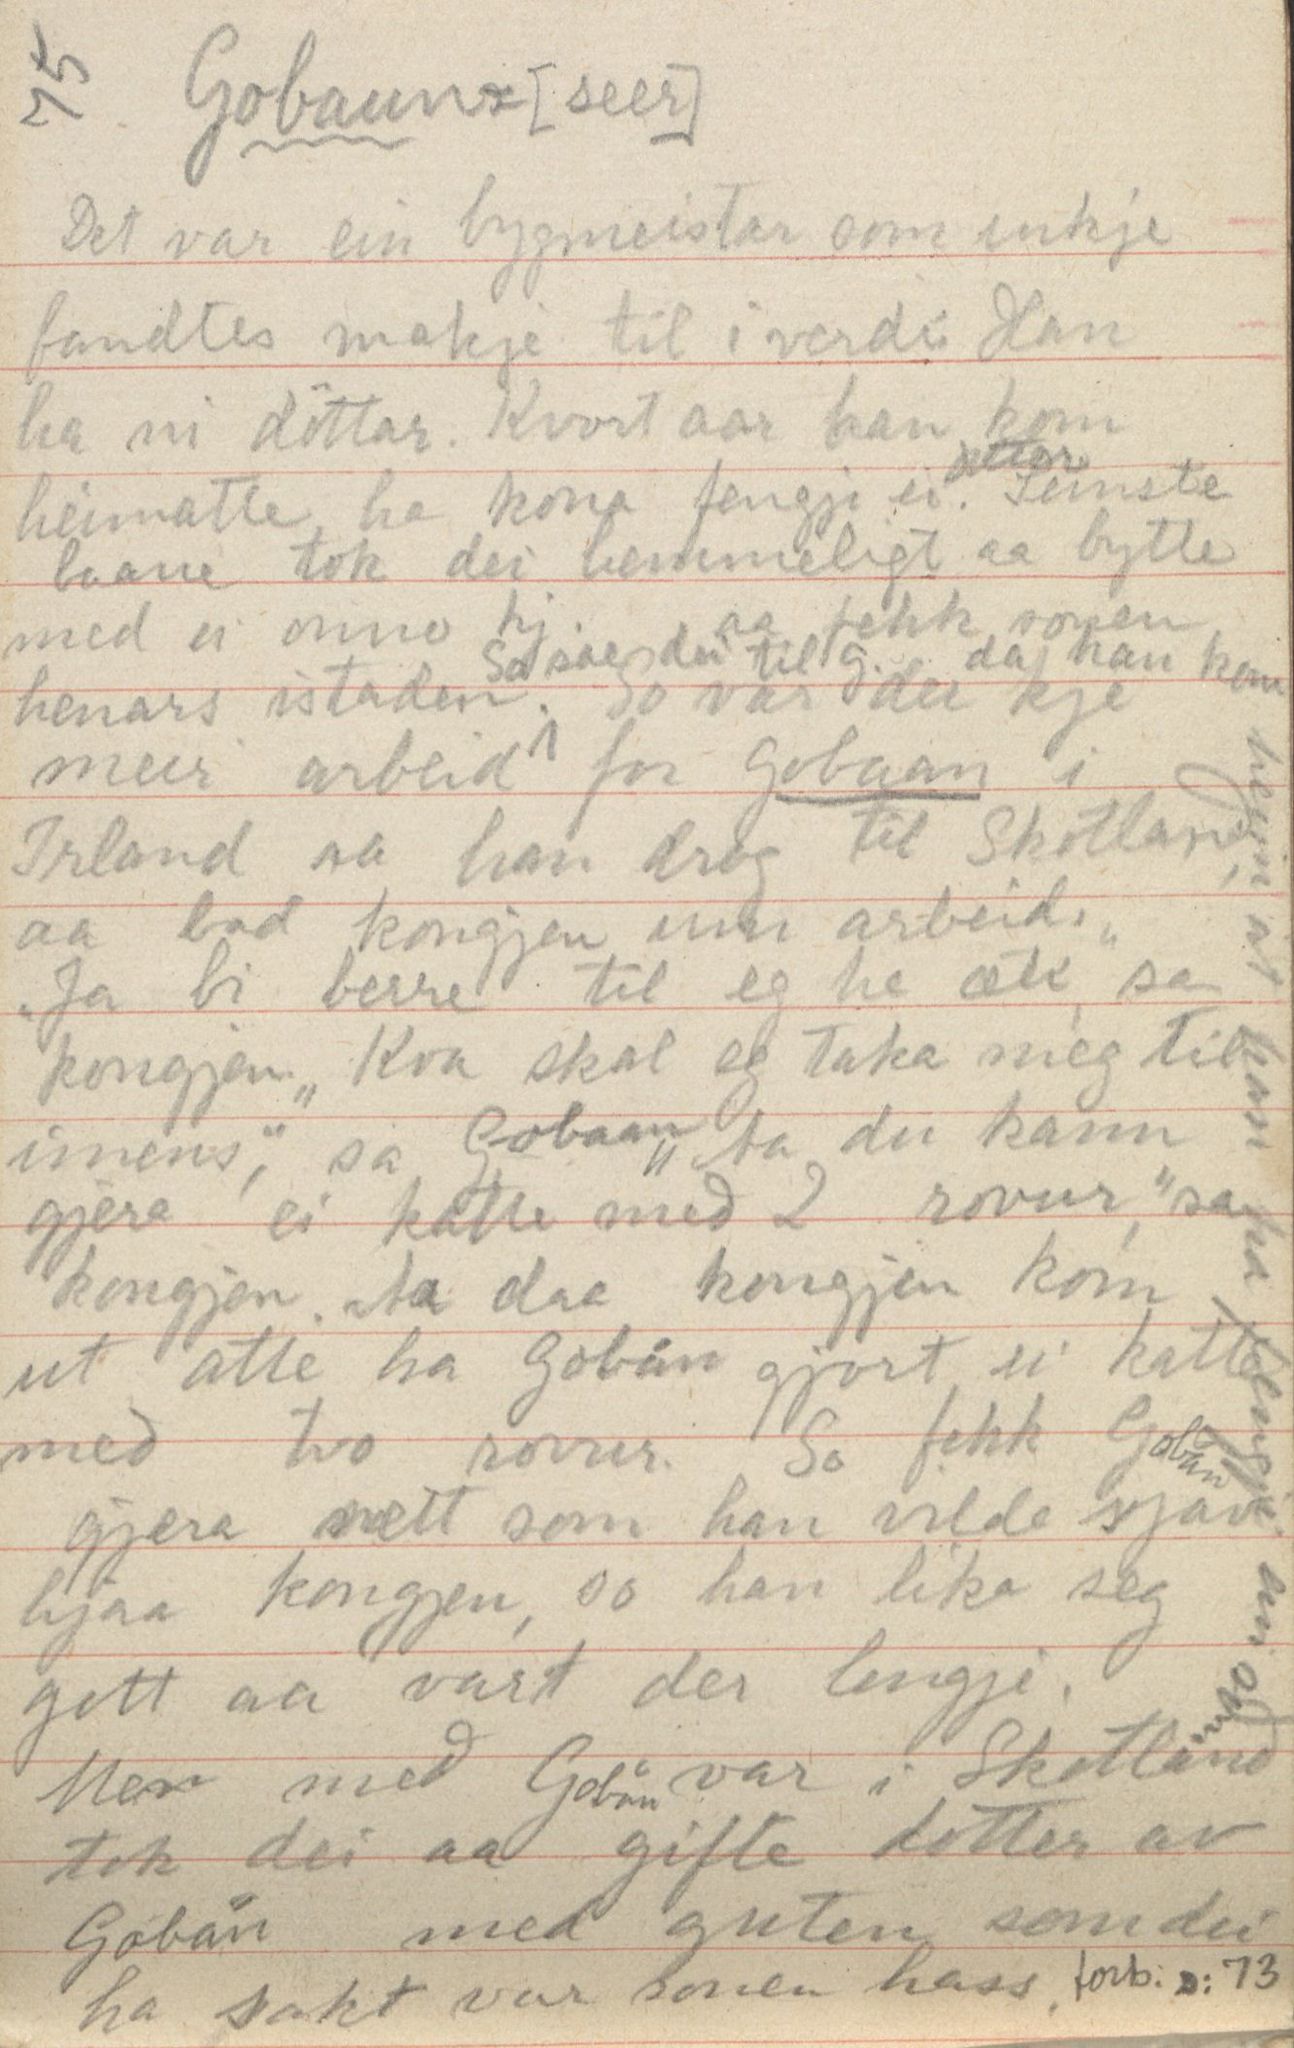 75 Gobaun [seer]
Det var ein bygmeistar som inkje
fandtes makje til i verdi. Han
ha ni döttar. Kvort aar han kom
heimatte, ha kona fengji ei dottar. Seinste
baane tok dei hemmeligt aa bytte
med ei onno kj. aa fekk sonen
henars istaden. So var dei kje
So sae dei til G. da han kom
heim at han ha fengji ein
meir arbeid for Gobaan i
Irland aa han drog til Skotland,
aa bad kongjen um arbeid.
"Ja bi berre til eg he æti, sa
kongjen. „Kva skal eg taka meg til
imens," sa Gobaan „Aa du kann
gjera ei katte med 2 rovur," sa
kongjen. Aa daa kongjen kom
ut atte ha Gobán gjort ei katte
med tvo rovur. So fekk Gobán
gjera nett som han vilde sjav
hjaa kongjen, so han lika seg
gott aa vart der lengji.
Men med Gobán var i Skotland
tok dei aa gifte dotter av
Gobán med guten som dei
ha sakt var sonen hass. forb. s: 73